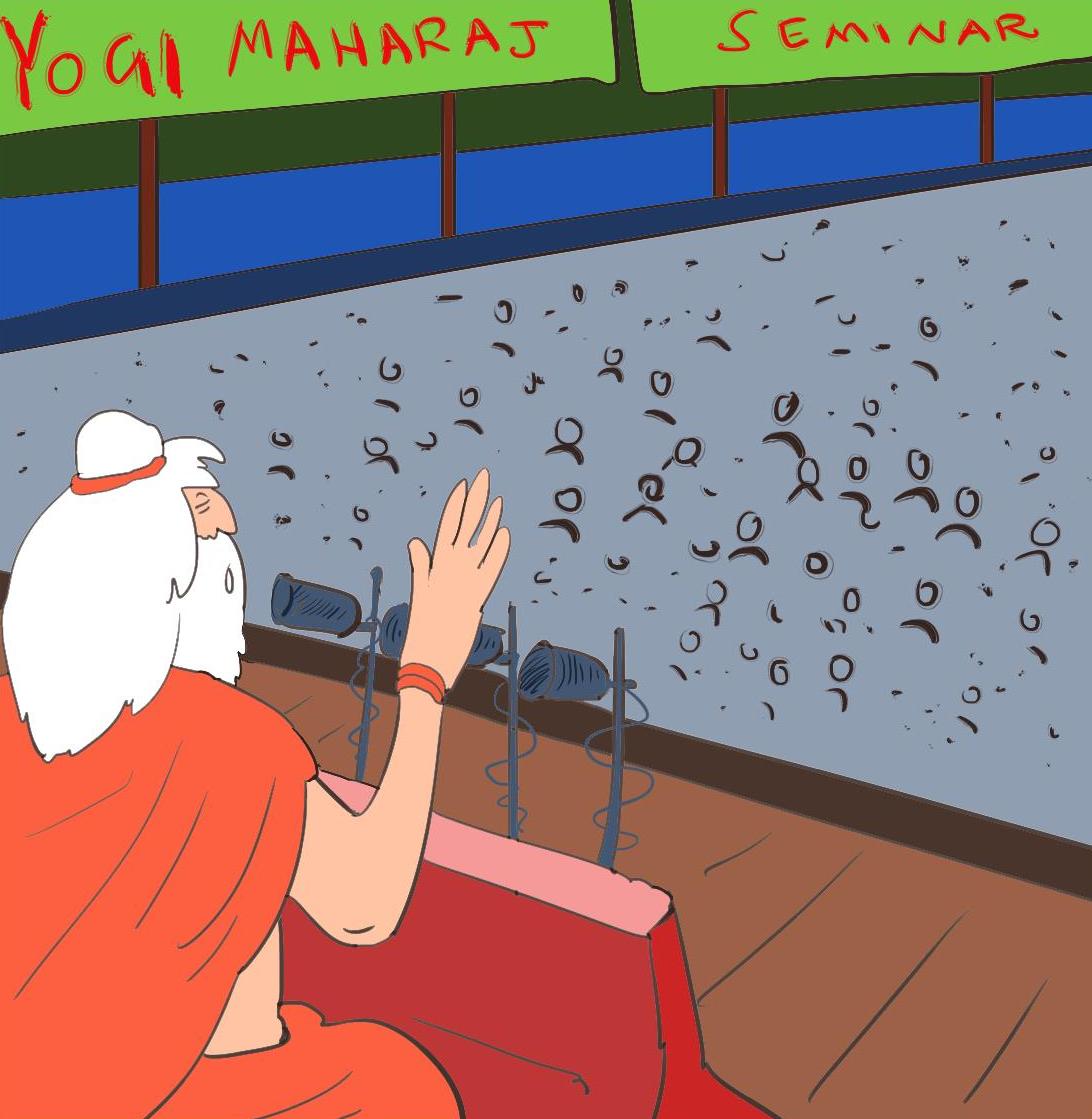 YOGI MAHARAJ SEMINAR